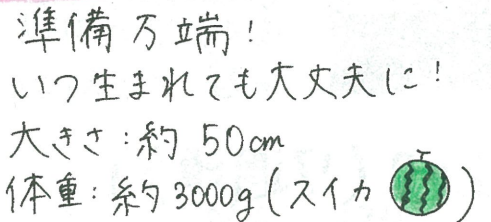 準備万端!
いつ生まれても大丈夫に!
大きさ:約 50cm
体重:約 3000g(スイカ )